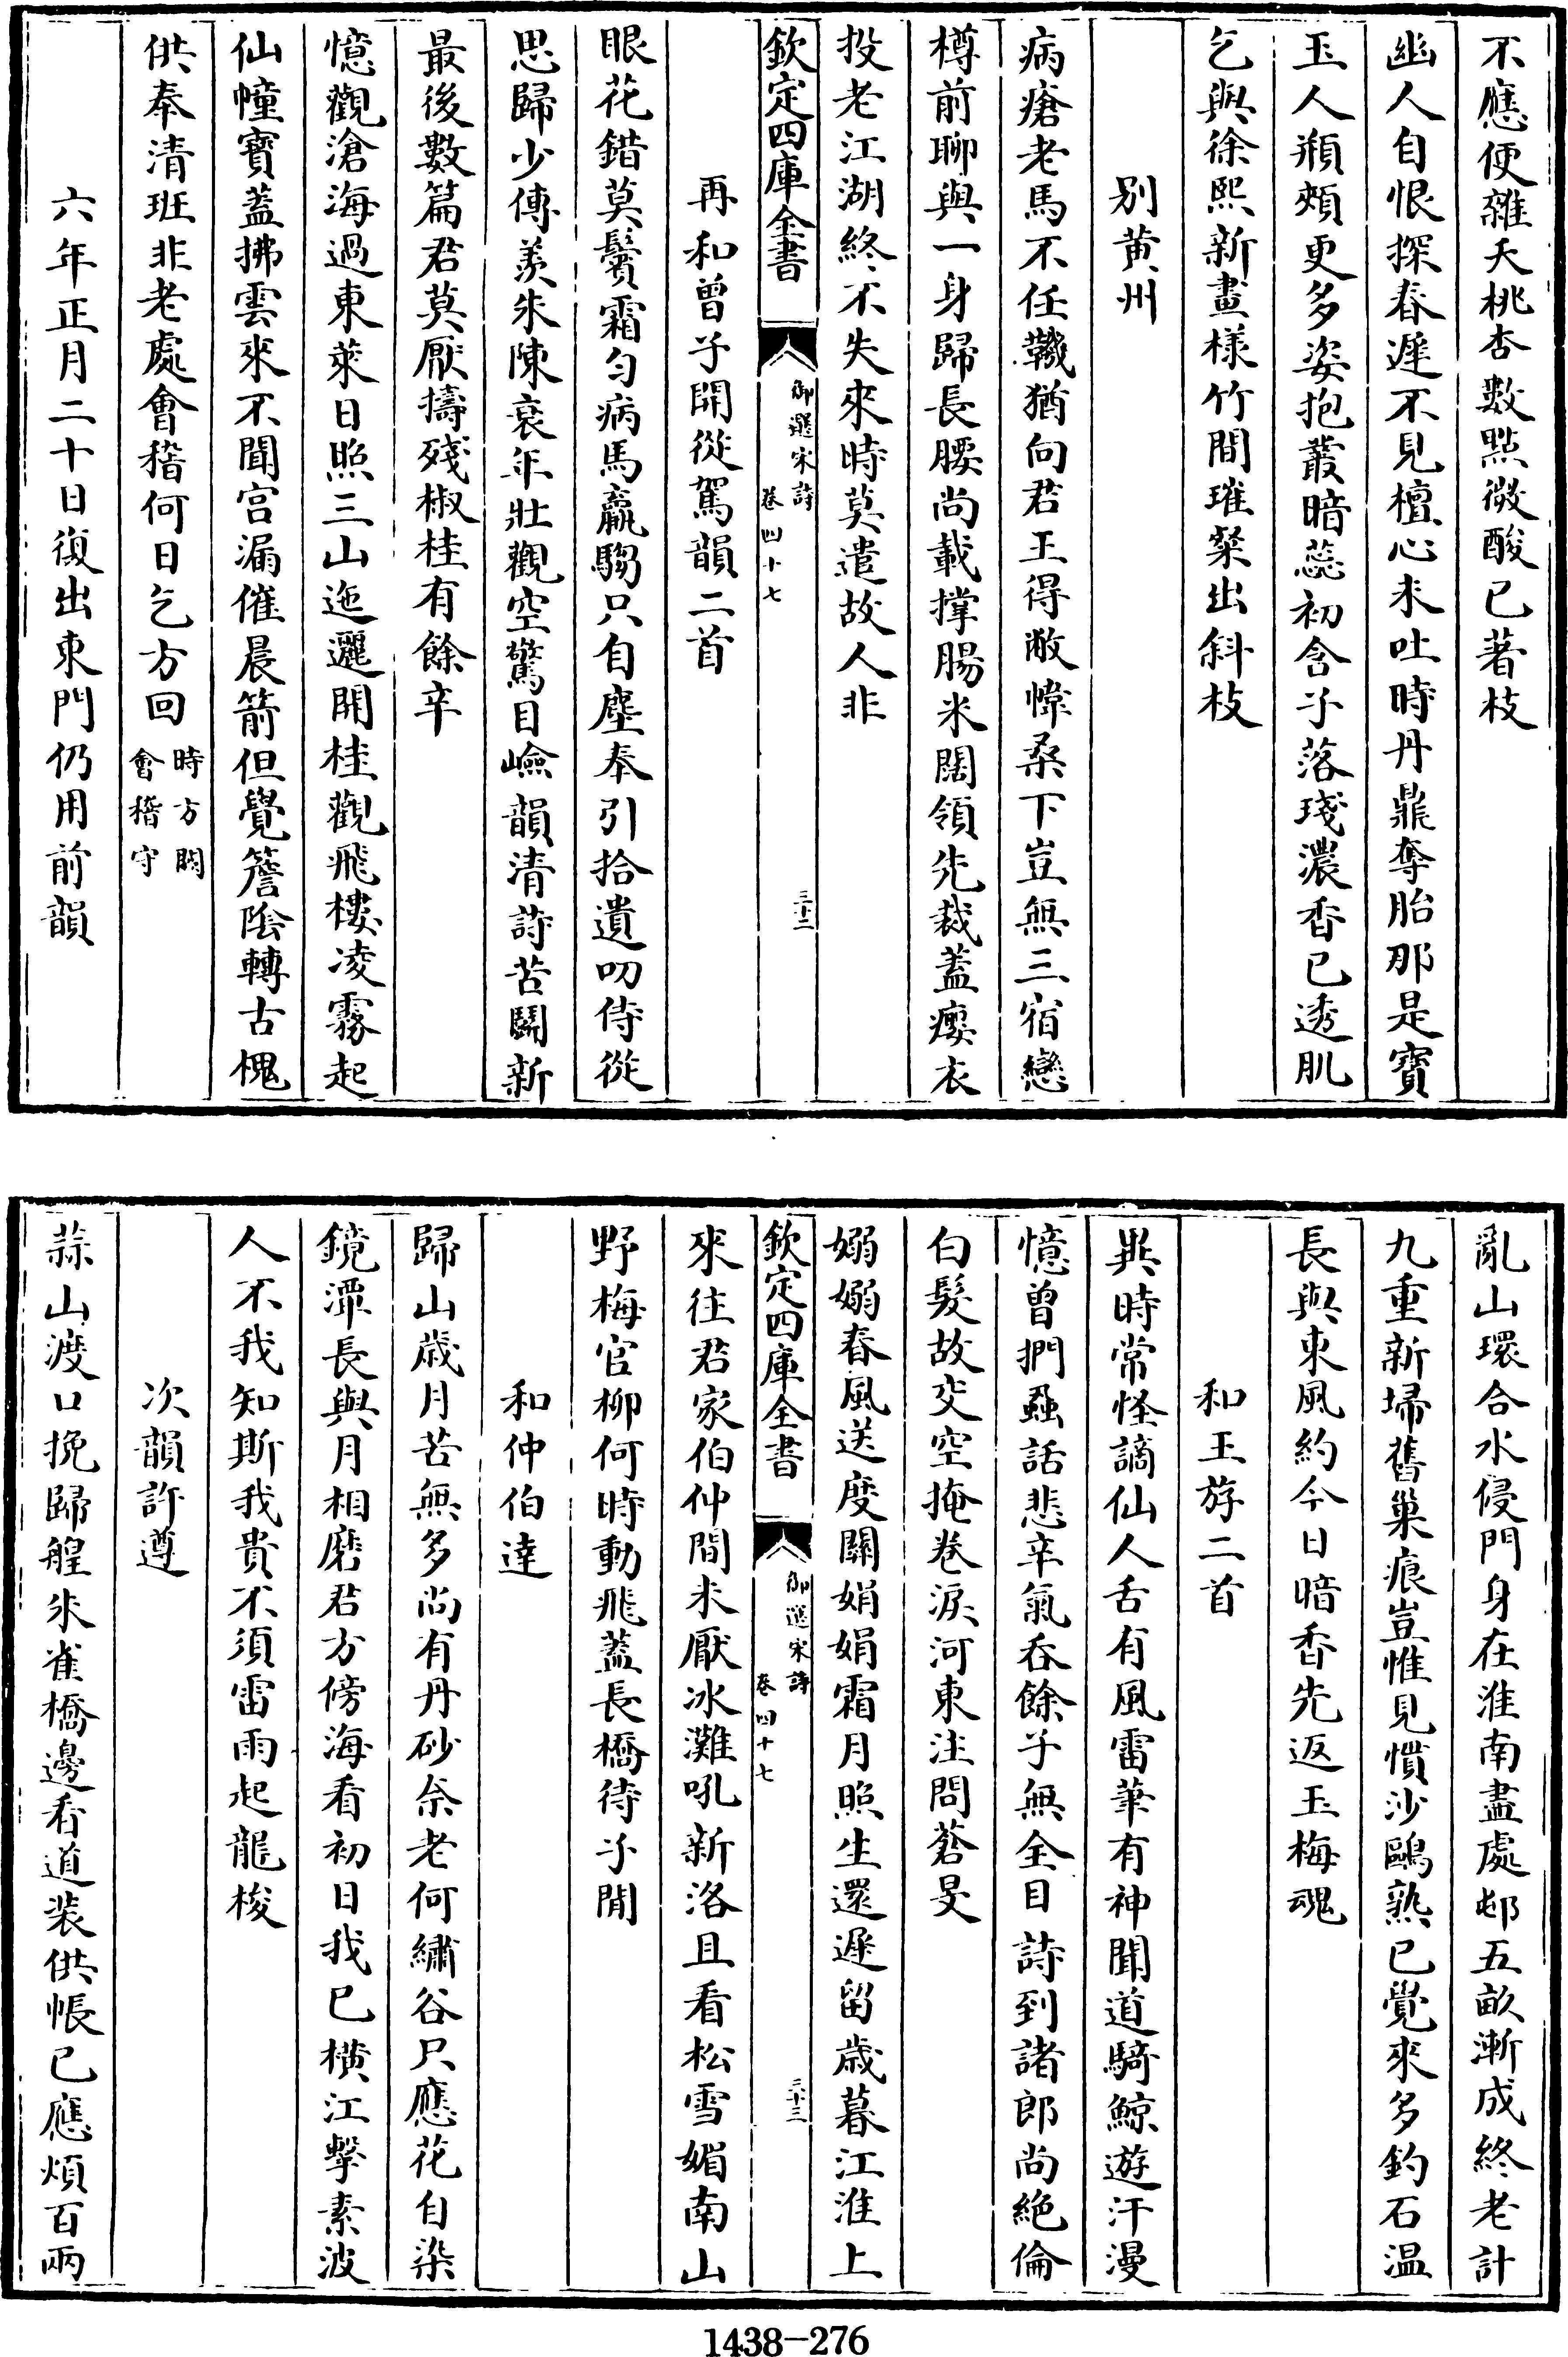 不應便雜夭桃杏數㸃微酸已著枝
幽人自恨探春遲不見檀心未吐時丹鼎奪胎那是寳
玉人頩頰更多姿抱叢暗蕊初含子落琖濃香已透肌
乞與徐熙新畫様竹間璀粲出斜枝
别黄州
病瘡老馬不任鞿猶向君王得敝幃桑下豈無三宿戀
樽前聊與一身歸長腰尚載撑腸米闊領先裁蓋癭衣
投老江湖終不失來時莫遣故人非
欽定四庫全書
御選宋詩
卷四十七
三十二
再和曾子開從駕韻二首
眼花錯莫鬢霜勻病馬羸騶只自塵奉引拾遺叨侍從
思歸少傅羨朱陳衰年壯觀空驚目嶮韻清詩苦鬭新
最後數篇君莫厭擣殘椒桂有餘辛
憶觀滄海過東萊日照三山迤邐開桂觀飛樓凌霧起
仙幢寳蓋拂雲來不聞宮漏催晨箭但覺簷陰轉古槐
供奉清班非老處會稽何日乞方回時方闕會稽守
六年正月二十日復出東門仍用前韻
亂山環合水侵門身在淮南盡處邨五畝漸成終老計
九重新埽舊巢痕豈惟見慣沙鷗熟已覺來多釣石温
長與東風約今日暗香先返玉梅魂
和王斿二首
異時常怪謫仙人舌有風雷筆有神聞道騎鯨遊汗漫
憶曾捫蝨話悲辛氣吞餘子無全目詩到諸郎尚絶倫
白髮故交空掩卷淚河東注問蒼旻
嫋嫋春風送度關娟娟霜月照生還遲留歲暮江淮上
欽定四庫全書
御選宋詩
卷四十七
三十三
來往君家伯仲間未厭冰灘吼新洛且看松雪媚南山
野梅官柳何時動飛蓋長橋待子閒
和仲伯達
歸山歲月苦無多尚有丹砂奈老何繡谷只應花自染
鏡潭長與月相磨君方傍海看初日我已横江擊素波
人不我知斯我貴不須雷雨起龍梭
次韻許遵
蒜山渡口挽歸艎朱雀橋邊看道装供帳已應煩百兩
1438-276